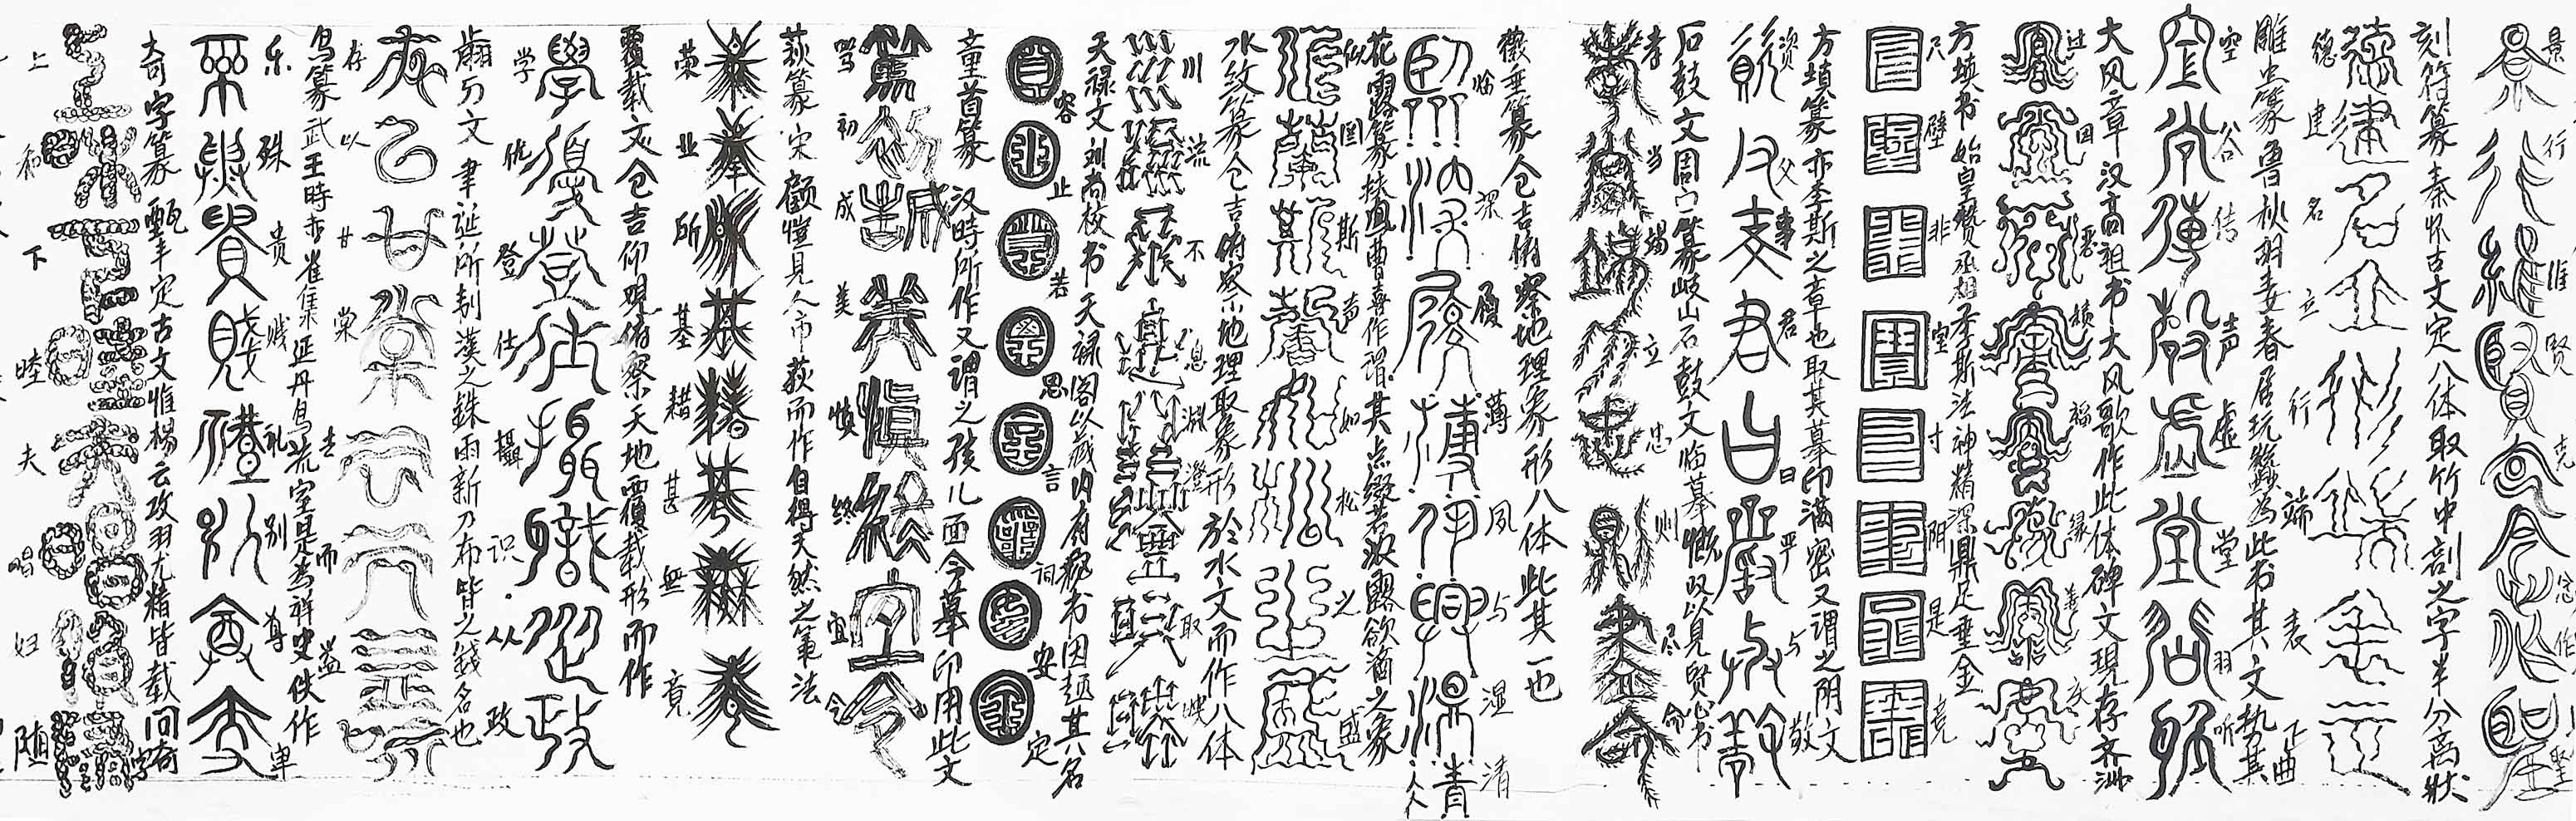 景行维贤克念作聖
刻符篆秦怀古文定八体取竹中剖之字半分离状
德建名立行端表
雕虫篆鲁秋胡妻春居玩蠶为此书其文势其下曲
空谷传声虚堂羽听
大风章汉高祖书大风歌作此体碑文現存齐洲
过因恶積福缘善庆
方填书始皇赞丞相李斯法神精深鼎足垂金
尺壁非宝寸阴是竞
方填篆亦李斯之章也取其摹印满密又谓之阴文
资父事君曰严与敬
石鼓文周门篆岐山石鼓文临摹慨叹以見贤心书
孝当竭立忠则尽命
垂篆仓吉俯察地理象形八体此其一也
临深履薄夙与温清
花露篆扶風曹喜作谓其点缀若浓露欲滴之象
似兰斯如松之盛
水纹篆仓吉俯察地理取象形於水文而作八体
川流不息渊澄取映
天禄文刘尚校书天禄阁以藏内府秘书因题其名
容止若思言词安定
童首篆汉時所作又谓之孩儿面今摹印用此文
笃初成美慎终宜令
荻篆宋顧愷見人市荻而作自得天然之筆法
荣业所基耤甚無竟
覆载文仓吉仰观俯察天地覆载形而作
学优登仕攝识从政
刀文聿延所刻漢之銖兩新刀布皆之錢名也
存以甘棠去而益
鸟篆武王時赤雀集丹鸟流室是为祥史佚作
乐殊贵贱礼别尊卑
奇字篆甄丰定古文惟楊云攻羽尤精皆载问奇字
上和下睦夫唱妇随